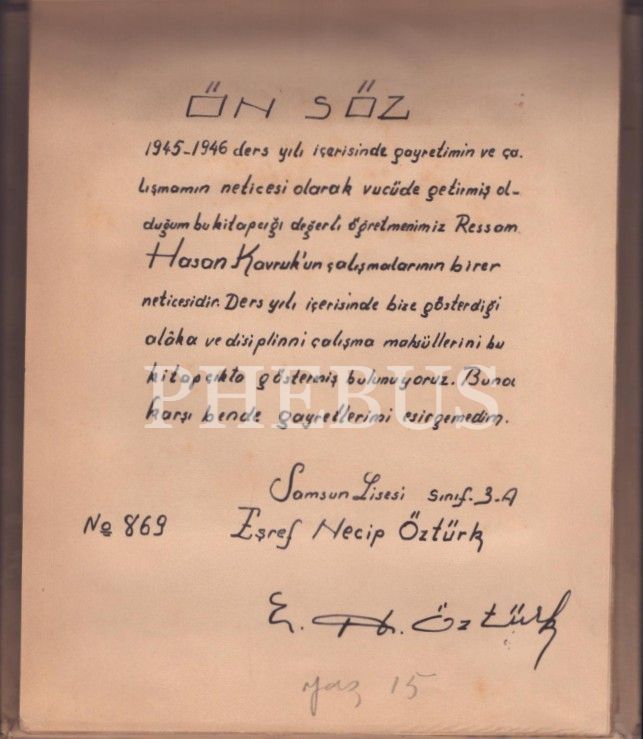 ÖN SÖZ
1945-1946 ders yılı içerisinde gayretimin ve ça-
lışmamın neticesi olarak vucüde getirmiş ol-
duğum bu kitapcığı değerli öğretmenimiz Ressam
Hasan Kavruk'un çalışmalarının birer
neticesidir. Ders yılı içerisinde bize gösterdiği
alâka ve disiplinni çalışma mahsüllerini bu
kitapçıkta göstermiş bulunuyoruz. Buna
karşı bende gayretlerimi esirgemedim.
PHEBUS
Samsun Lisesi sınıf. 3-A
No 869 Eşref Necip Öztürk
E. N. Öztürk
yaz 15